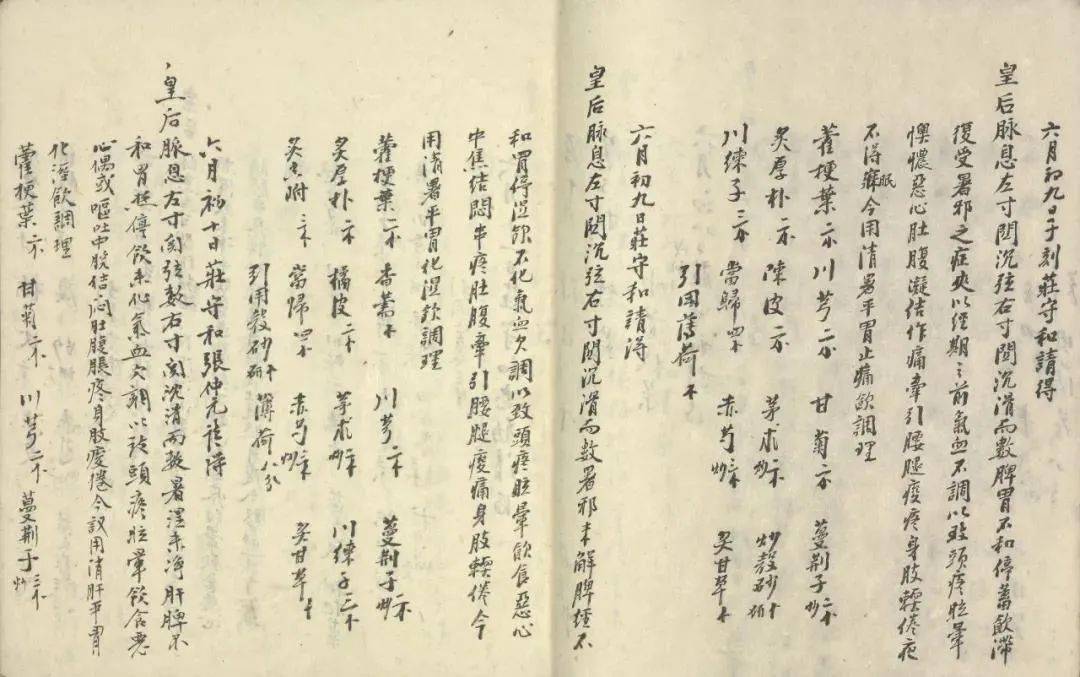 六月初九日子刻莊守和請得
皇后脉息左寸關沉弦右寸關沉滑而數脾胃不和停蓄飲滯
復受暑邪之症夾以經期之前氣血不調以致頭疼眩暈
懊憹惡心肚腹凝結作痛牽引腰腿痠疼身肢輭倦夜
不得眠今用清暑平胃止痛飲調理
藿梗葉二 川芎二 甘菊三 蔓荆子三炒
炙厚朴二 陳皮二 茅朮炒 炒穀砂研
川練子三 當歸四 赤芍炒 炙甘草
引用薄荷
六月初九日莊守和請得
皇后脉息左寸關沉弦右寸關沉滑而數暑邪未解脾經不
和胃停濕飲不化氣血欠調以致頭疼眩暈飲食惡心
中焦結悶串疼肚腹牽引腰腿痠痛身肢輭倦今
用清暑平胃化濕飲調理
藿梗葉二 香薷 川芎二 蔓荆子三炒
炙厚朴二 橘皮二 茅朮炒 川練子三
炙香附三 當歸四 赤芍炒 炙甘草
引用穀砂研 薄荷八分
六月初十日莊守和張仲元請得
皇后脉息左寸關弦數右寸關沈滑而數暑濕未淨肝脾不
和胃熱停飲未化氣血欠調以致頭疼眩暈飲食惡
心偶或嘔吐中脘結悶肚腹脹疼身肢痠倦今議用清肝平胃
化溼飲調理
藿梗葉 甘菊 川芎 蔓荆子三炒